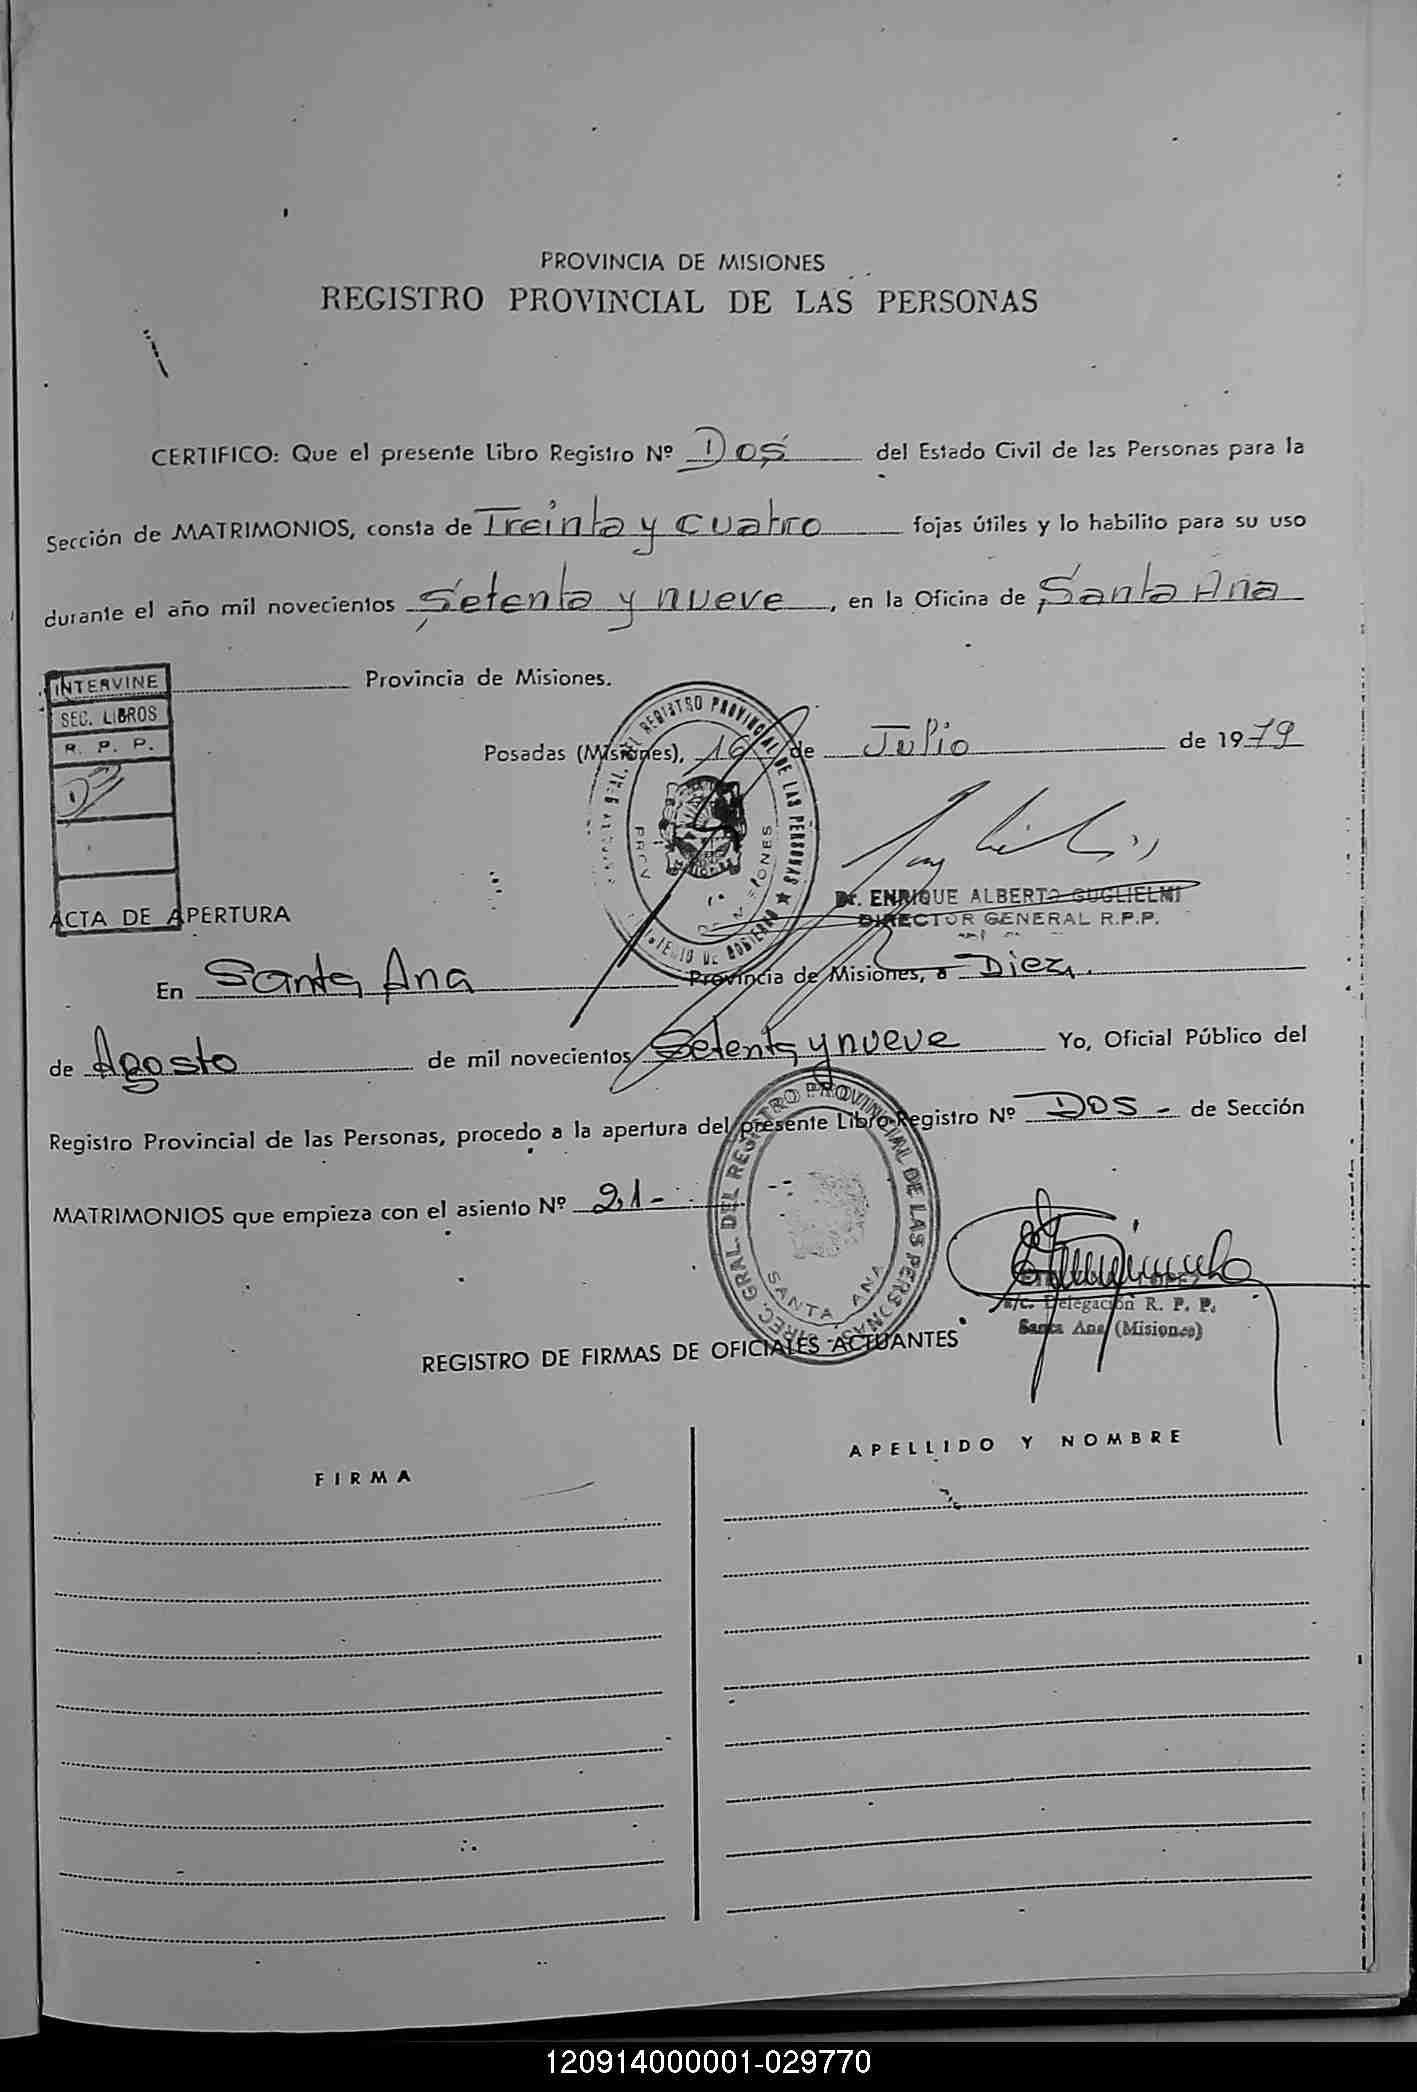 PROVINCIA DE MISIONES
REGISTRO PROVINCIAL DE LAS PERSONAS
CERTIFICO: Que el presente Libro Registro Nº Dos del Estado Civil de las Personas para la
Sección de MATRIMONIOS, consta de Treinta y cuatro fojas útiles y lo habilito para su uso
durante el año mil novecientos Setenta y nueve, en la Oficina de Santa Ana
Provincia de Misiones.
INTERVINE
SEC. LIBROS
R. P. P.
Posadas (Misiones), 16 de Julio de 1979
DEL REGISTRO PROVINCIAL DE LAS PERSONAS
Dr. ENRIQUE ALBERTO GUGLIELMI
DIRECTOR GENERAL R.P.P.
ACTA DE APERTURA
En Santa Ana Provincia de Misiones, a Diez
de Agosto de mil novecientos Setenta y nueve Yo, Oficial Público del
Registro Provincial de las Personas, procedo a la apertura del presente Libro Registro Nº DOS - de Sección
MATRIMONIOS que empieza con el asiento Nº 21-
DIREC. GRAL. DEL REGISTRO PROVINCIAL DE LAS PERSONAS
SANTA ANA
a/c. Delegación R. P. P.
Santa Ana (Misiones)
REGISTRO DE FIRMAS DE OFICIALES ACTUANTES
FIRMA
APELLIDO Y NOMBRE
120914000001-029770